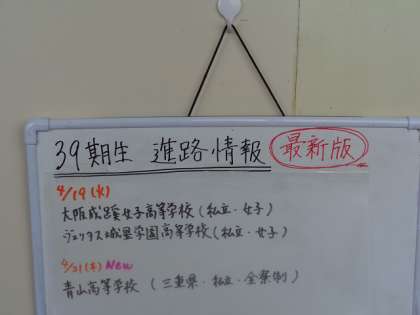 39期生 進路情報 最新版
4/19(火)
大阪成蹊女子高等学校(私立・女子)
ヴェリタス城星学園高等学校(私立・女子)
4/21(木) New
青山高等学校(三重県・私立・全寮制)